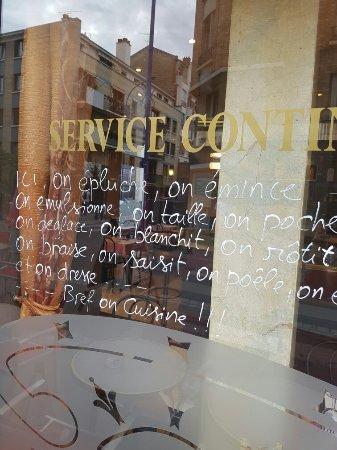 SERVICE CONTIN
Ici, on épluche, on émince
on émulsionne, on taille, on poche
on déglace, on blanchit, on rôtit
on braise, on saisit, on poêle, on é
et on dresse
.... Bref on Cuisine !!!